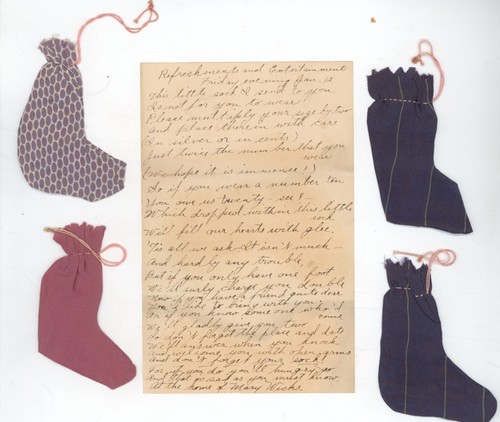 Refreshments and Entertainment
Friday evening Jan. 12
This little sock I send to you
Is not for you to wear
Please multiply your size by two
and place therein with care
In silver or in cents)
Just twice the number that you
wear
(We hope it is immense!)
So if your wear a number ten
You owe us twenty - see! -
Which dropped within this little
sock
Will fill our hearts with glee.
'Tis all we ask It isn't much -
And hardly any trouble,
But if you only have one foot
We'll surly charge you double
Now if you have a friend quite dear
You'd like to bring with you;
Or if you know some one who'd
come
We'll gladly give you two
So don't forget the place and date
We'll answer when you knock
And welcome you with open arms
and don't forget your sock!
For if you do you'll hungry go
And that is sad as you must know.
At the home of Mary